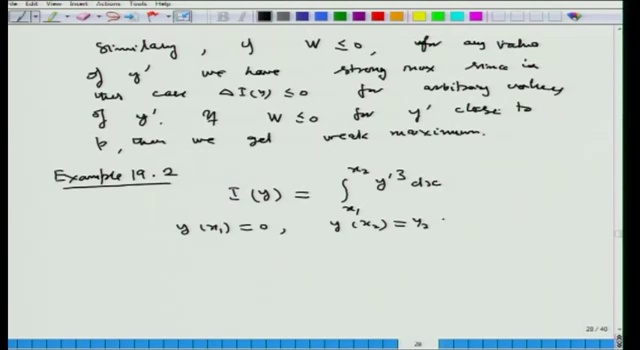 File Edit View Insert Actions Tools Help
Similary, if W ≤ 0, for any value
of y' we have strong max since in
this case ΔI(y) ≤ 0 for arbitrary values
of y'. If W ≤ 0 for y' close to
p, then we get weak maximum.
Example 19.2
I(y) = ∫_{x₁}^{x₂} y'³ dx
y(x₁) = 0, y(x₂) = y₂
28 / 40
28